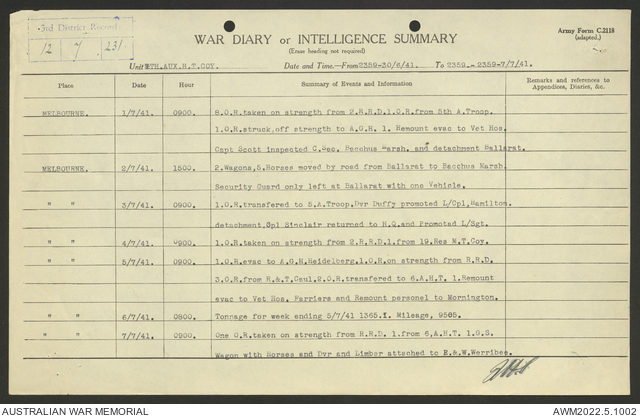 3rd District Records
12 7 231
WAR DIARY or INTELLIGENCE SUMMARY
(Erase heading not required)
Army Form C.2118
(adapted.)
Unit 7TH.AUX.H.T.COY. Date and Time.—From 2359-30/6/41. To 2359.-2359-7/7/41.
Place Date Hour Summary of Events and Information Remarks and references to
Appendices, Diaries, &c.
MELBOURNE. 1/7/41. 0900. 8.O.R.taken on strength from 2.R.R.D.1.O.R.from 5th A.Troop.
1.O.R.struck.off strength to A.G.H. 1. Remount evac to Vet Hos.
Capt Scott inspected C.Sec. Bacchus Marsh. and detachment Ballarat.
MELBOURNE. 2/7/41. 1500. 2.Wagons,5.Horses moved by road from Ballarat to Bacchus Marsh.
Security Guard only left at Ballarat with one Vehicle.
" " 3/7/41. 0900. 1.O.R.transfered to 5.A.Troop.Dvr Duffy promoted L/Cpl,Hamilton.
detachment,Spl Sinclair returned to H.Q.and Promoted L/Sgt.
" " 4/7/41. 0900. 1.O.R.taken on strength from 2.R.R.D.1.from 19.Res M.T.Coy.
" " 5/7/41. 0900. 1.O.R.evac to A.G.H.Heidelberg.1.O.R.on strength from R.R.D.
3.O.R.from R.&.T.Caul.2.O.R.transfered to 6.A.H.T. 1.Remount
evac to Vet Hos. Farriers and Remount personel to Mornington.
" " 6/7/41. 0800. Tonnage for week ending 5/7/41 1365.1. Mileage, 9565.
" " 7/7/41. 0900. One O.R.taken on strength from R.R.D. 1.from 6,A.H.T. 1.G.S.
Wagon with Horses and Dvr and Limber attached to R.&.W.Werribee.
AUSTRALIAN WAR MEMORIAL
AWM2022.5.1002